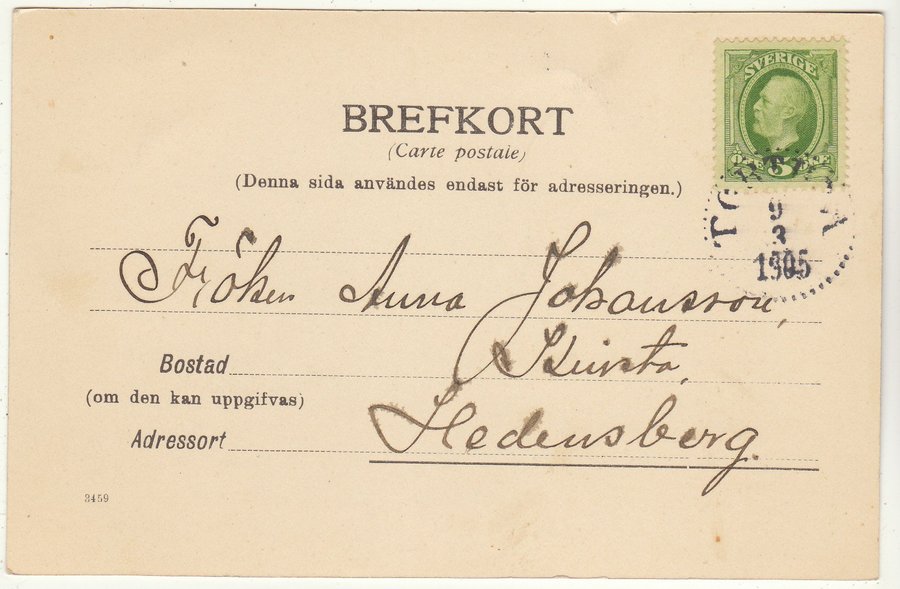 BREFKORT
(Carte postale)
(Denna sida användes endast för adresseringen.)
SVERIGE
5
9
3
1905
Fröken Anna Johansson,
Bostad
(om den kan uppgifvas)
Adressort Hedensberg.
3459